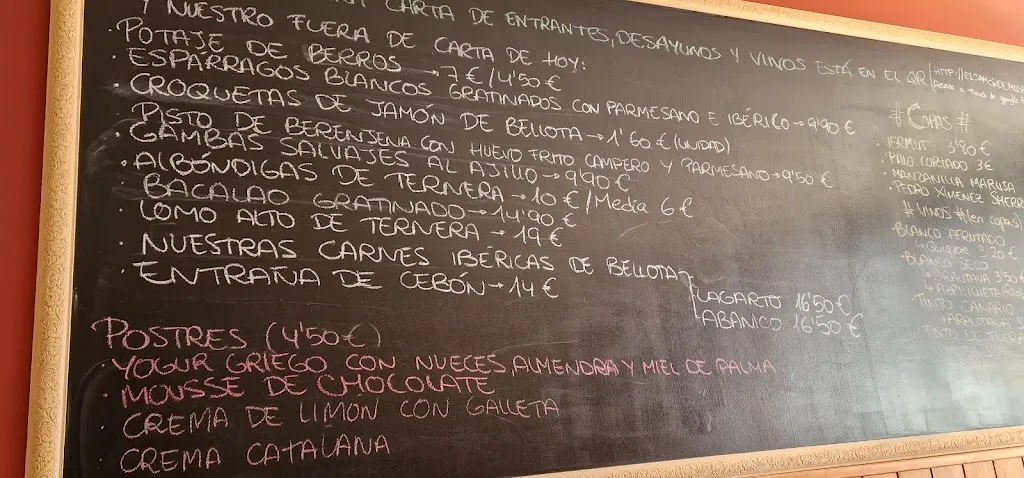 CARTA DE ENTRANTES, DESAYUNOS Y VINOS ESTÁ EN EL QR
Y NUESTRO FUERA DE CARTA DE HOY:
· POTAJE DE BERROS → 7€/4'50€
· ESPÁRRAGOS BLANCOS GRATINADOS CON PARMESANO E IBÉRICO → 9'90€
· CROQUETAS DE JAMÓN DE BELLOTA → 1'60€ (UNIDAD)
· PISTO DE BERENJENA CON HUEVO FRITO CAMPERO Y PARMESANO → 9'50€
· GAMBAS SALVAJES AL AJILLO → 9'90€
· ALBÓNDIGAS DE TERNERA → 10€/Media 6€
BACALAO GRATINADO → 14'90€
· LOMO ALTO DE TERNERA → 19€
· NUESTRAS CARNES IBÉRICAS DE BELLOTA
LAGARTO 16'50€
ABANICO 16'50€
· ENTRAÑA DE CEBÓN → 14€
POSTRES (4'50€)
· YOGUR GRIEGO CON NUECES, ALMENDRA Y MIEL DE PALMA
· MOUSSE DE CHOCOLATE
· CREMA DE LIMÓN CON GALLETA
CREMA CATALANA
# COPAS #
· VERMUT 3'80€
· PALO CORTADO 3€
· MANZANILLA
· PEDRO XIMENEZ SHERR
# VINOS # (en copas)
· BLANCO AFRUTADO
· BLANCO SECO
· TINTO CANARIO